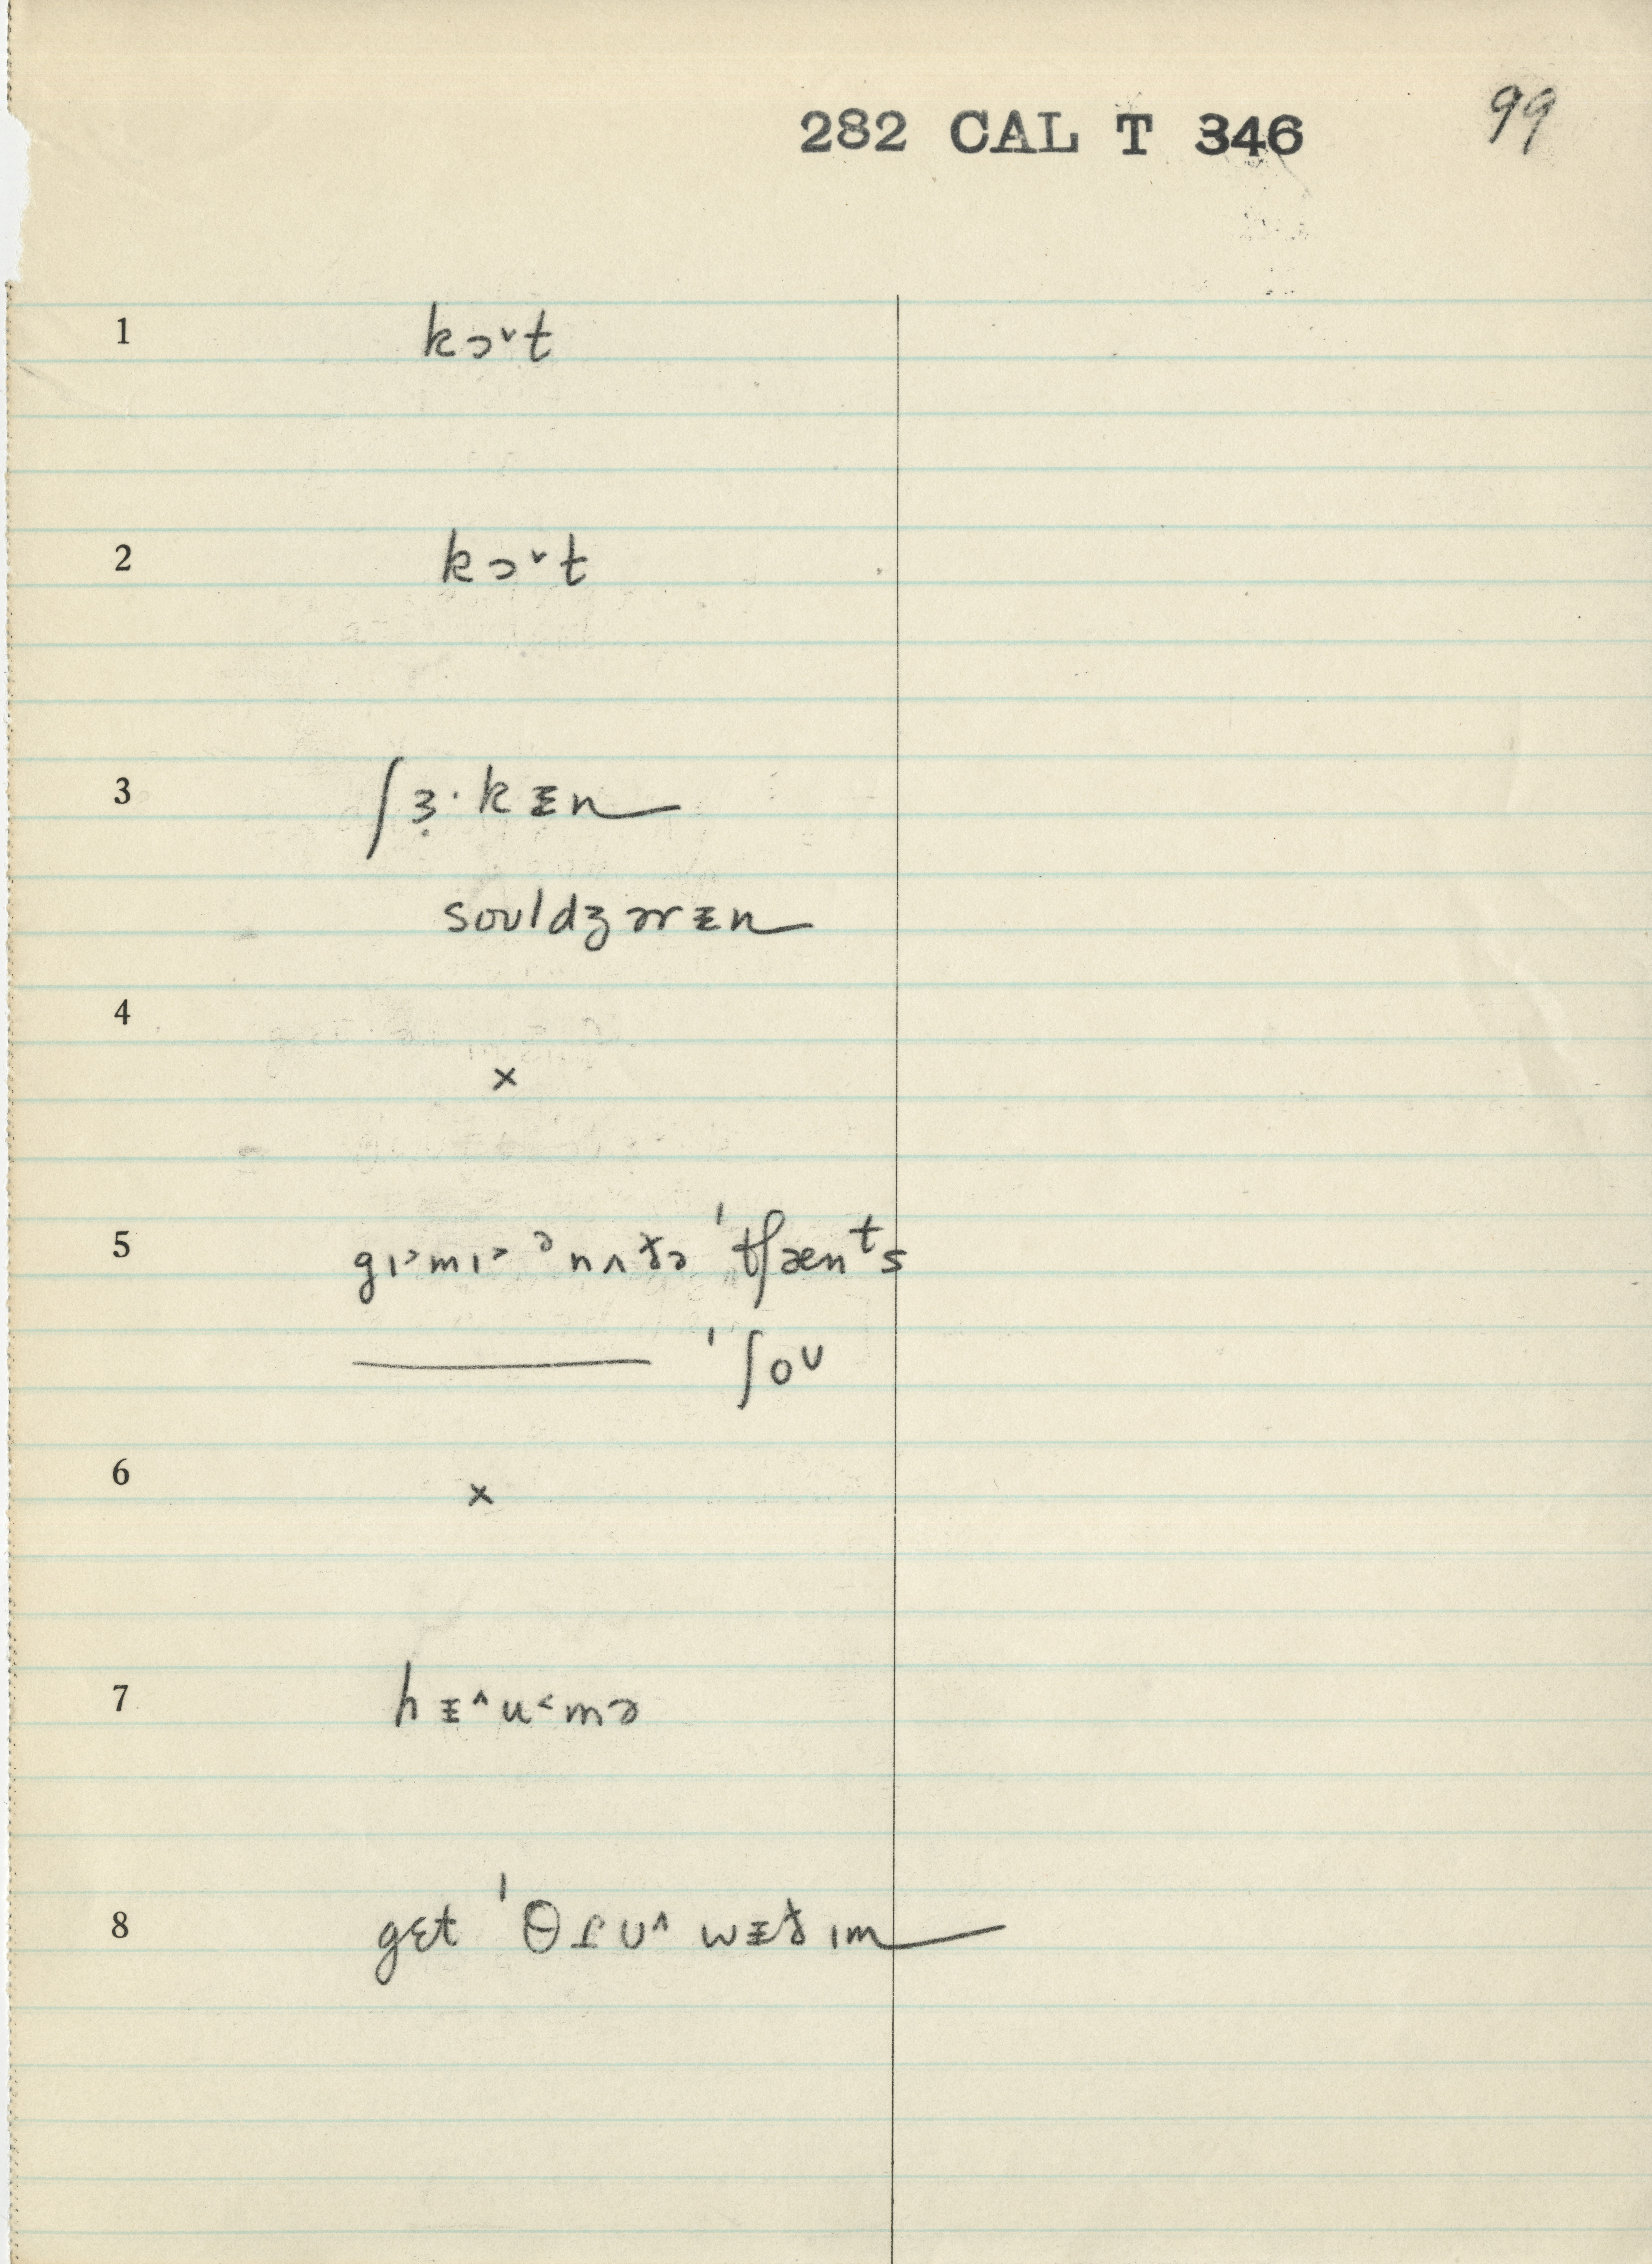 282 CAL T 346 99
1 kɔ˅t
2 kɔ˅t
3 ʃɜ̣·kɪ̵n
souldʒərɪ̵n
4 ×
5 gɪ˃mɪ˃ ᵊnʌðə ˈtʃænᵗs
——— ˈʃoᴜ
6 ×
7 hɪ̵˄u˂mə
8 gɛt ˈθɹu˄ wɪ̵ðɪm